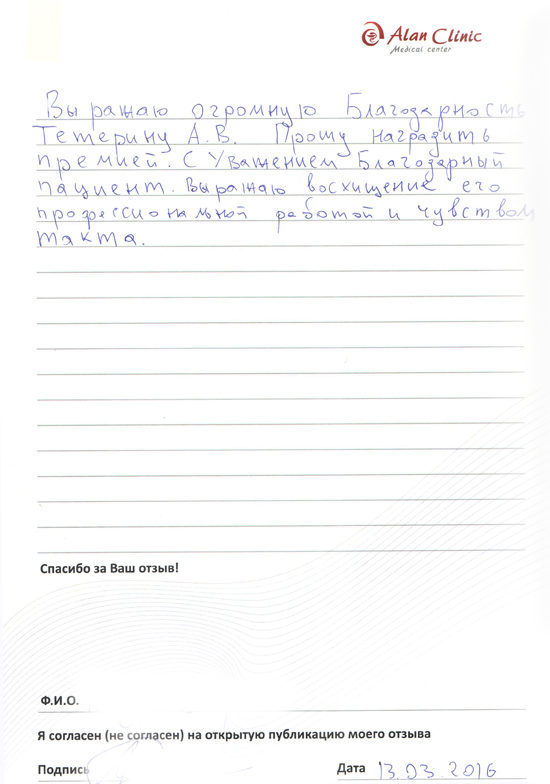 Alan Clinic
Medical center
Выражаю огромную Благодарность
Тетерину А.В. Прошу наградить
премией. С Уважением Благодарный
пациент. Выражаю восхищение его
профессиональной работой и чувством
такта.
Спасибо за Ваш отзыв!
Ф.И.О.
Я согласен (не согласен) на открытую публикацию моего отзыва
Подпись
Дата 13.03.2016